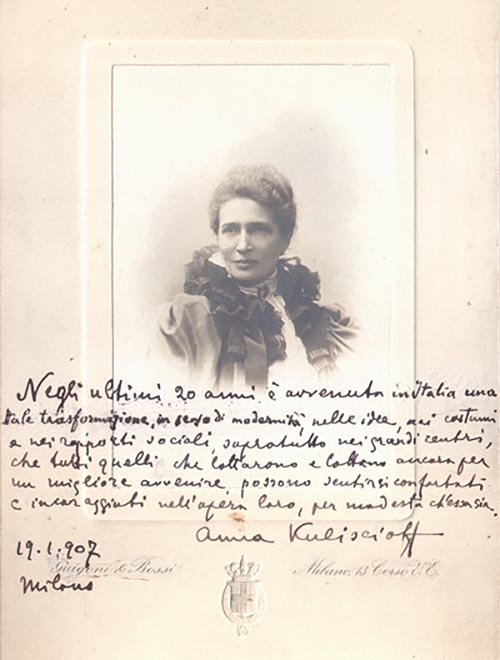 Negli ultimi 20 anni è avvenuta in Italia una
tale trasformazione, in senso di modernità, nelle idee, nei costumi
e nei rapporti sociali, sopratutto nei grandi centri,
che tutti quelli che lottarono e lottano ancora per
un migliore avvenire, possono sentirsi confortati
e incoraggiati nell'opera loro, per modesta ch'essa sia.
Anna Kuliscioff
19.1.907
Milano
Guigoni & Bossi
Milano, 13 Corso V. E.